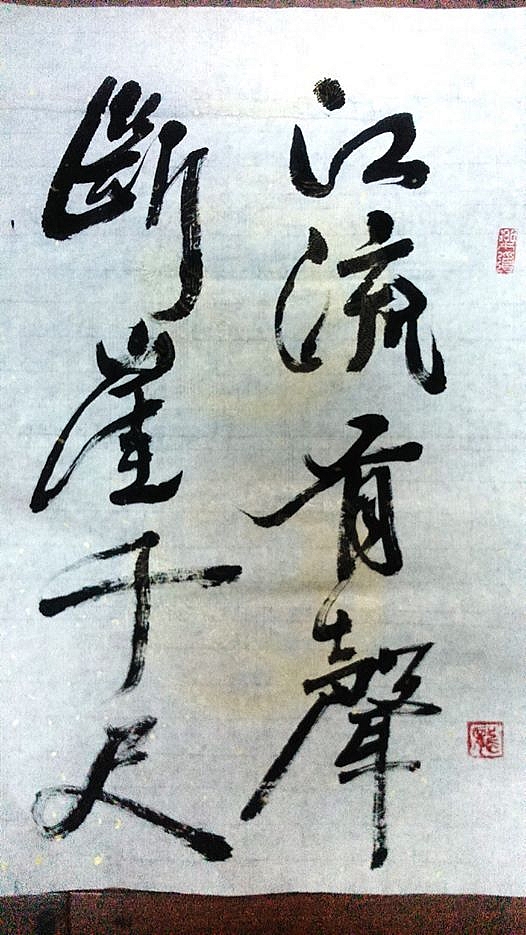 江流有聲
斷崖千尺